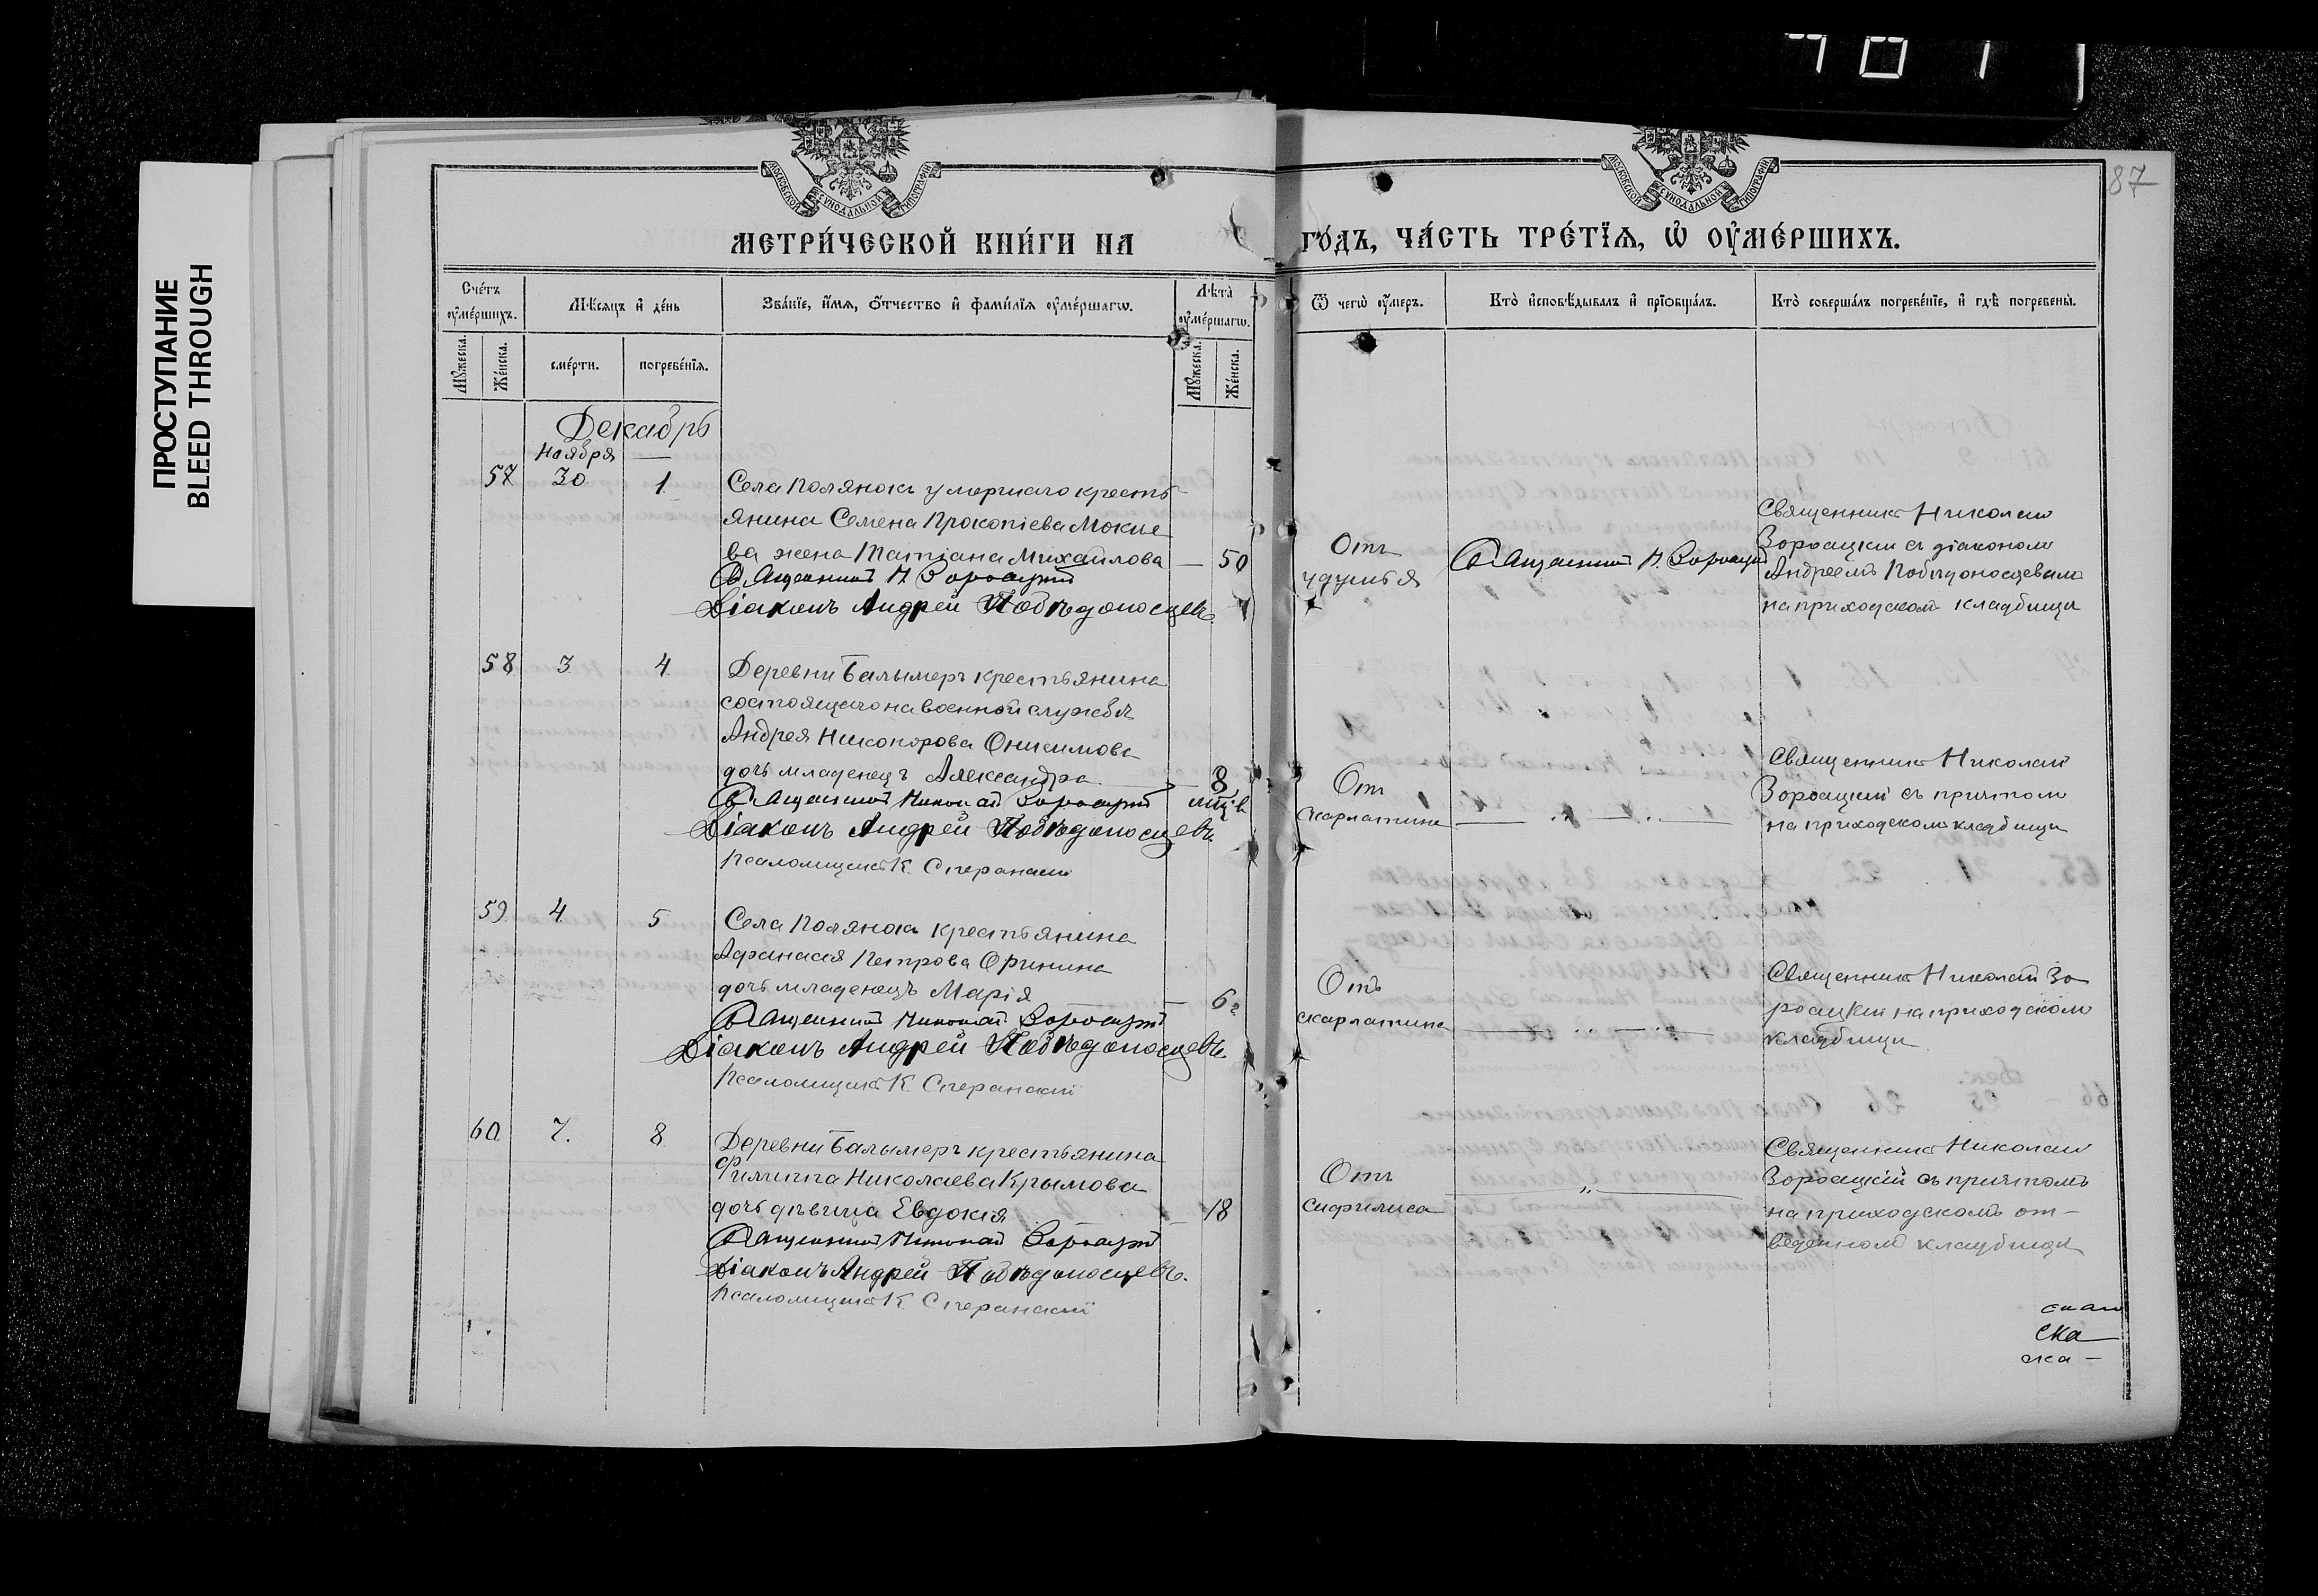 ПРОСТУПАНИЕ
BLEED THROUGH
87
МОСКОВСКОЙ СѴНОДАЛЬНОЙ ТИПОГРАФІИ
МОСКОВСКОЙ СѴНОДАЛЬНОЙ ТИПОГРАФІИ
МЕТРИ́ЧЕСКОЙ КНИ́ГИ НА
ГО́ДЪ, ЧА́СТЬ ТРЕ́ТЇѦ, Ѡ҆ ОУ҆МЕ́РШИХЪ.
Сче́тъ оу҆ме́ршихъ.
Мѣ́сяцъ и҆ де́нь
Зва́нїе, и҆́мя, ѻ҆́тчество и҆ фами́лїя оу҆ме́ршагѡ.
Лѣта̀ оу҆ме́ршагѡ.
Ѿ чегѡ̀ оу҆́меръ.
Кто̀ и҆сповѣ́дывалъ и҆ прїѡбща́лъ.
Кто̀ соверша́лъ погребе́нїе, и҆ гдѣ̀ погребены̀.
Мꙋ́жеска.
Же́нска.
сме́рти.
погребе́нїя.
Мꙋ́жеска.
Же́нска.
Декабрь
Ноября
57 30. 1. Села Полянокъ умершаго кресть-
янина Семена Прокопіева Мокие
ва жена Татіана Михайлова — 50
Священникъ Н. Зороацкій
Діаконъ Андрей Побѣдоносцевъ.
Отъ
удушья
Священникъ Н. Зороацкій
Священникъ Николай
Зороацкій съ діакономъ
Андреемъ Побѣдоносцевымъ
на приходскомъ кладбищѣ
58 3. 4. Деревни Балымеръ крестьянина
состоящаго на военной службѣ
Андрея Никонорова Онисимова
дочь младенецъ Александра — 8
Священникъ Николай Зороацкій мѣц.
Діаконъ Андрей Побѣдоносцевъ.
Псаломщикъ К. Сперанскій
Отъ
скарлатины
Священникъ Николай
Зороацкій съ причтомъ
на приходскомъ кладбищѣ
59. 4. 5 Села Полянокъ крестьянина
Афанасія Петрова Оринина
дочь младенецъ Марія — 6 г
Священникъ Николай Зороацкій
Діаконъ Андрей Побѣдоносцевъ.
Псаломщикъ К. Сперанскій
Отъ
скарлатины
Священникъ Николай Зо
роацкій на приходскомъ
кладбищѣ
60. 7. 8 Деревни Балымеръ крестьянина
Филиппа Николаева Крымова
дочь дѣвица Евдокія — 18
Священникъ Николай Зороацкій
Діаконъ Андрей Побѣдоносцевъ.
Псаломщикъ К. Сперанскій
Отъ
сифилиса
Священникъ Николай
Зороацкій съ причтомъ
на приходскомъ от-
веденномъ кладбищѣ
ска
ска —